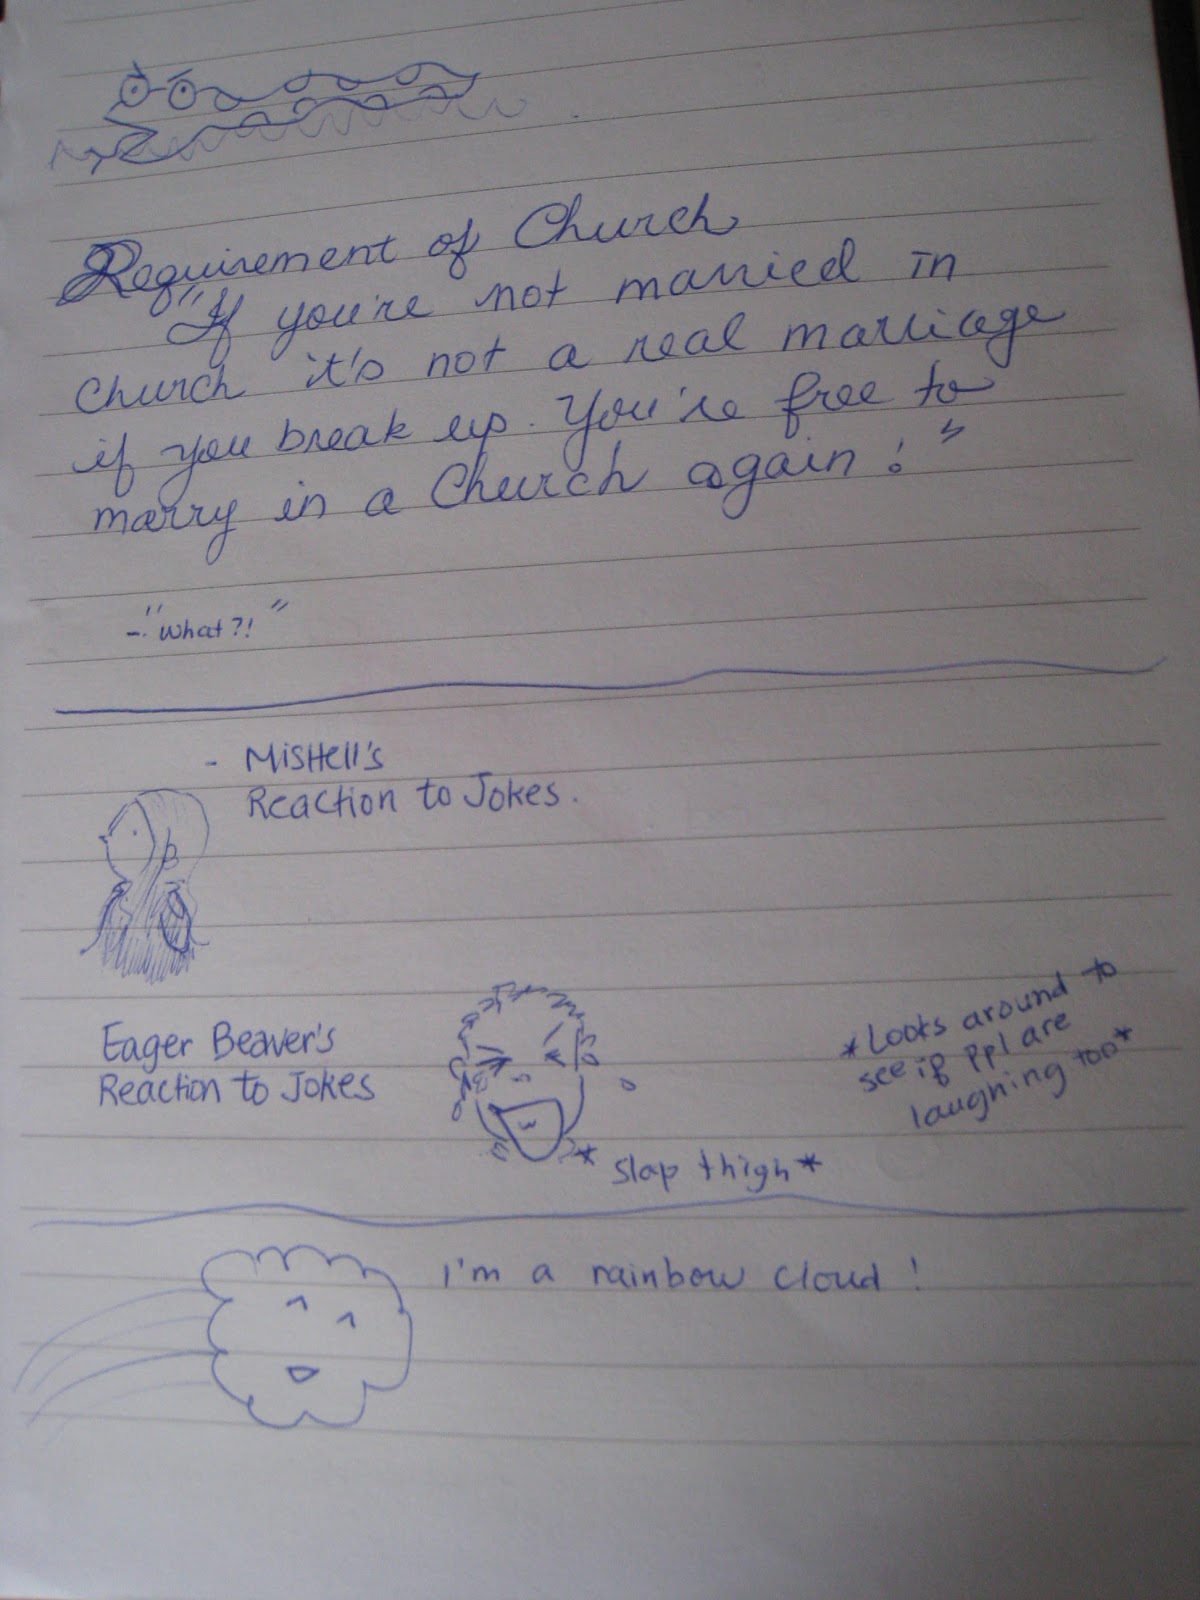 Requirement of Church
"If you're not married in
Church it's not a real marriage
if you break up. You're free to
marry in a Church again!"
- "What?!"
- MisHell's
Reaction to Jokes.
Eager Beaver's
Reaction to Jokes
*Looks around to
see if ppl are
laughing too*
*slap thigh*
I'm a rainbow cloud!